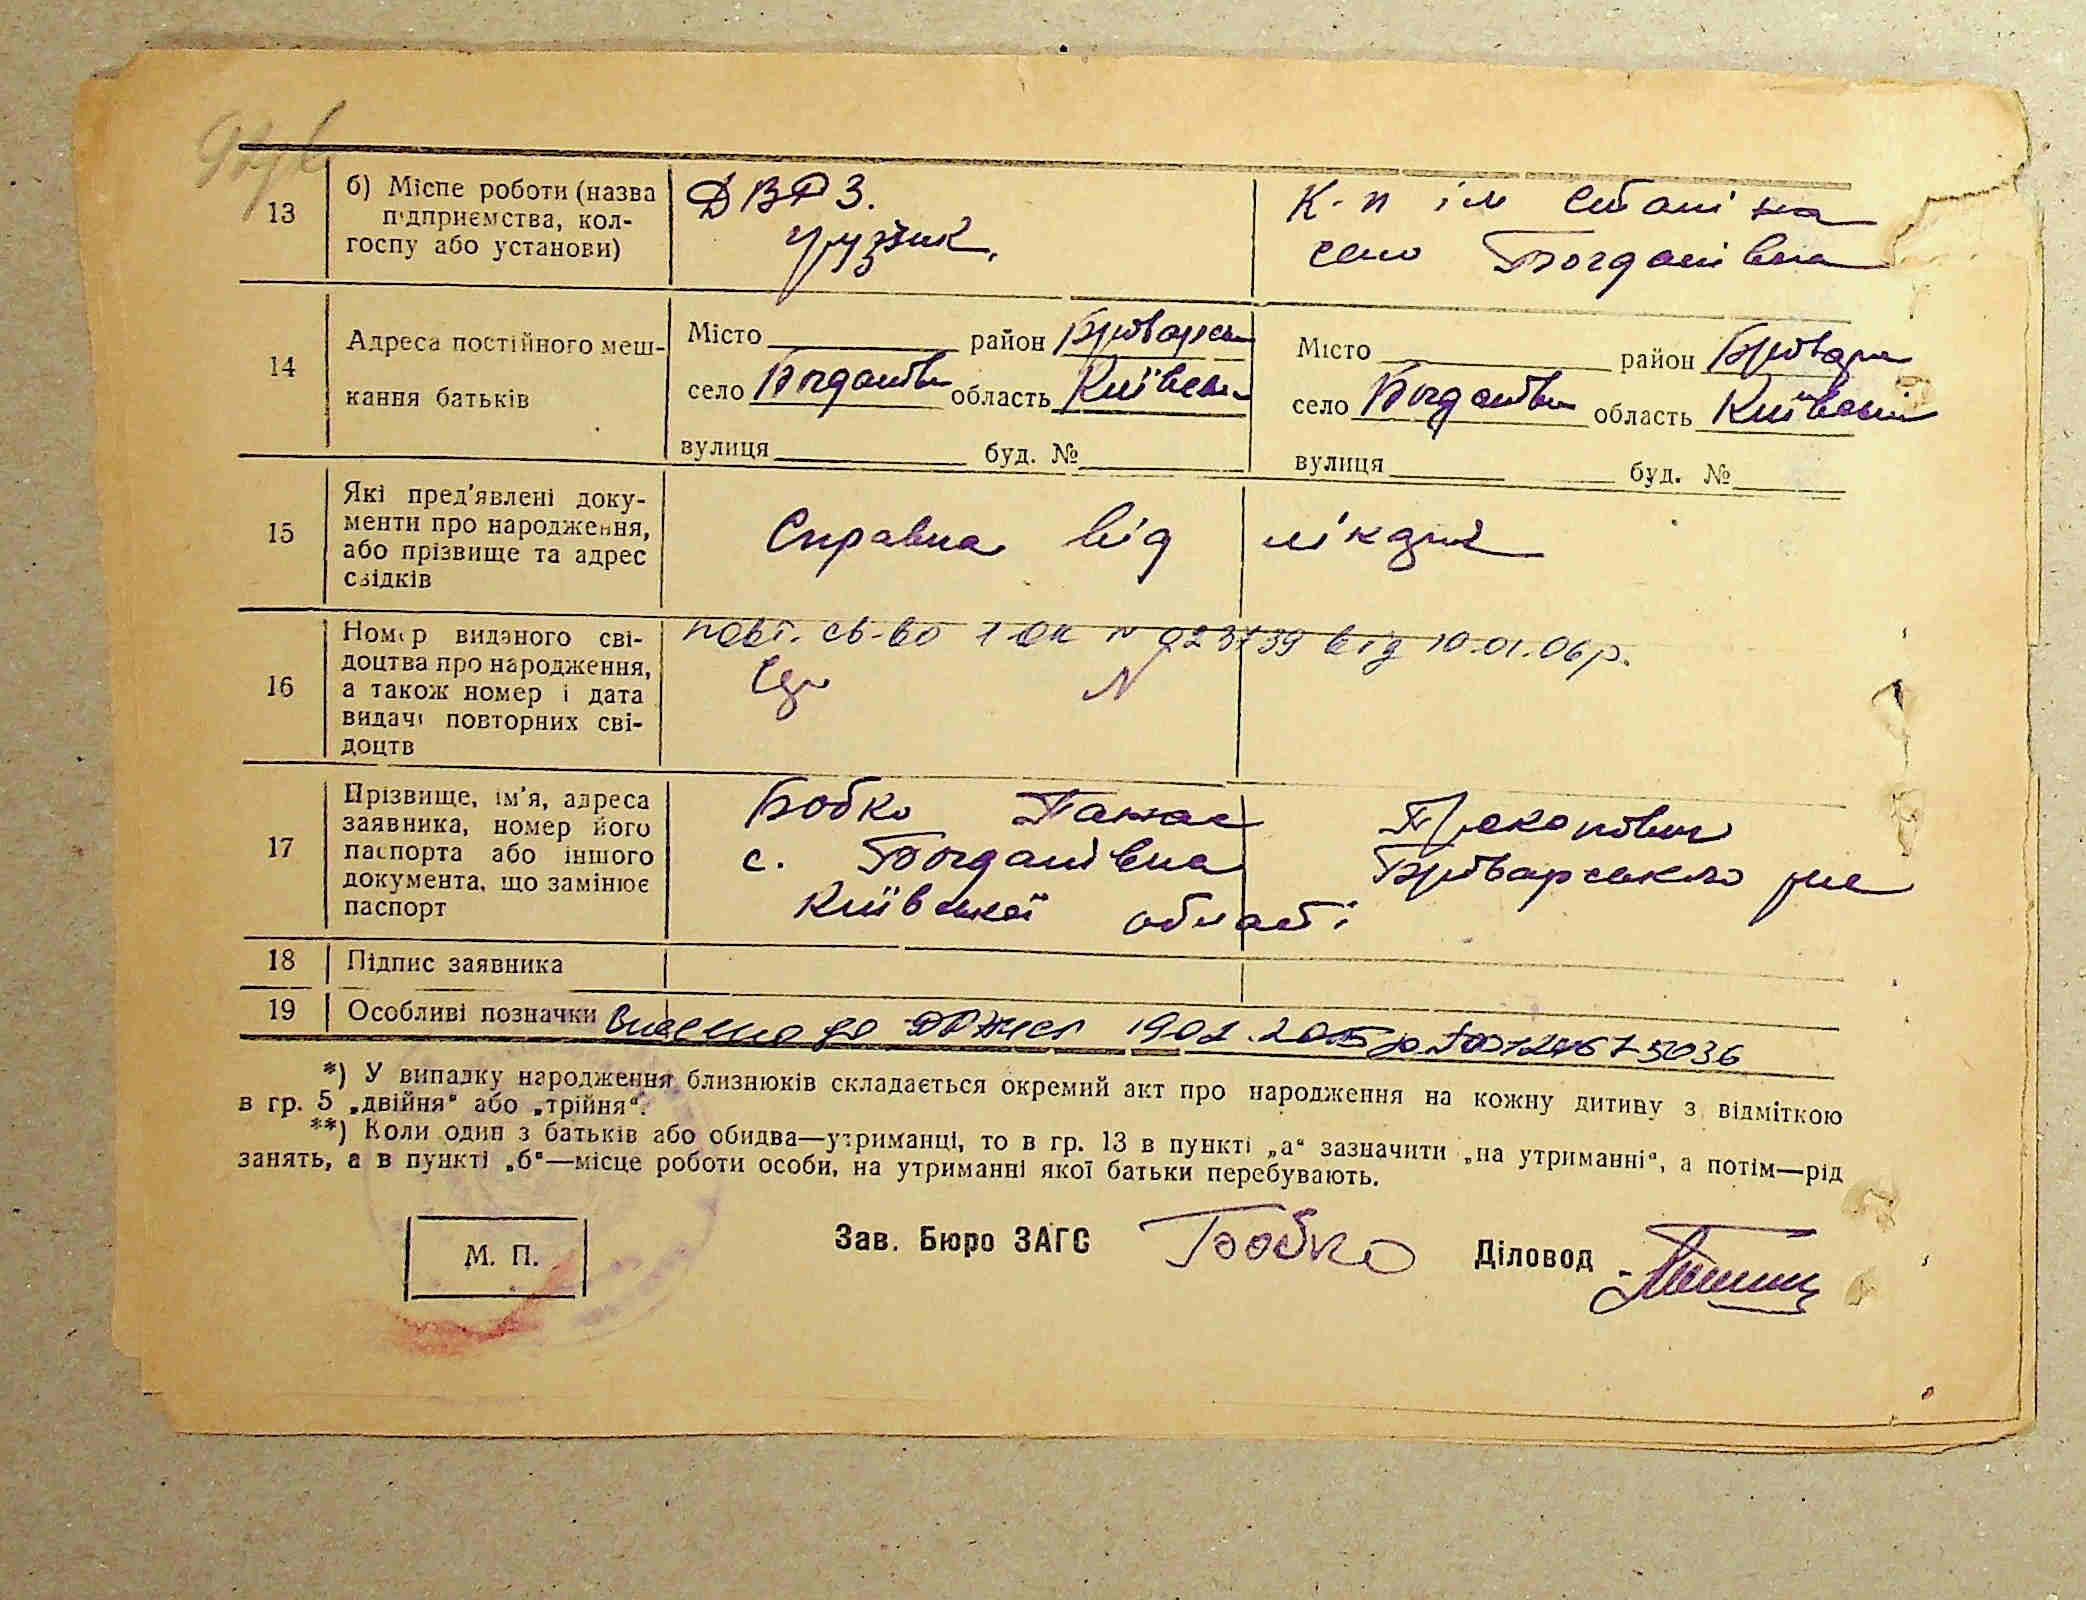 13 б) Місце роботи (назва підприємства, колгоспу або установи)
ДВРЗ. К-п ім Сталіна
грузчик. село Богданівка
14 Адреса постійного мешкання батьків
Місто район Броварськ Місто район Бровари
село Богданівк область Київськ село Богданівк область Київськ
вулиця буд. № вулиця буд. №
15 Які пред'явлені документи про народження, або прізвище та адрес свідків
Справка від лікаря
16 Номер виданого свідоцтва про народження, а також номер і дата видачі повторних свідоцтв
повт. св-во 1-ОК № 023739 від 10.01.06р.
N
17 Прізвище, ім'я, адреса заявника, номер його паспорта або іншого документа, що замінює паспорт
Бобко Панас Прокопович
с. Богданівка Броварського р-на
Київської області
18 Підпис заявника
19 Особливі позначки внесено до
*) У випадку народження близнюків складається окремий акт про народження на кожну дитину з відміткою
в гр. 5 „двійня“ або „трійня“.
**) Коли один з батьків або обидва—утриманці, то в гр. 13 в пункті „а“ зазначити „на утриманні“, а потім—рід
занять, а в пункті „б“—місце роботи особи, на утриманні якої батьки перебувають.
М. П. Зав. Бюро ЗАГС Бобко Діловод